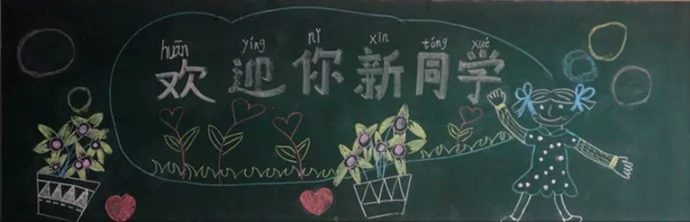 huān yíng nǐ xīn tóng xué
欢迎你新同学